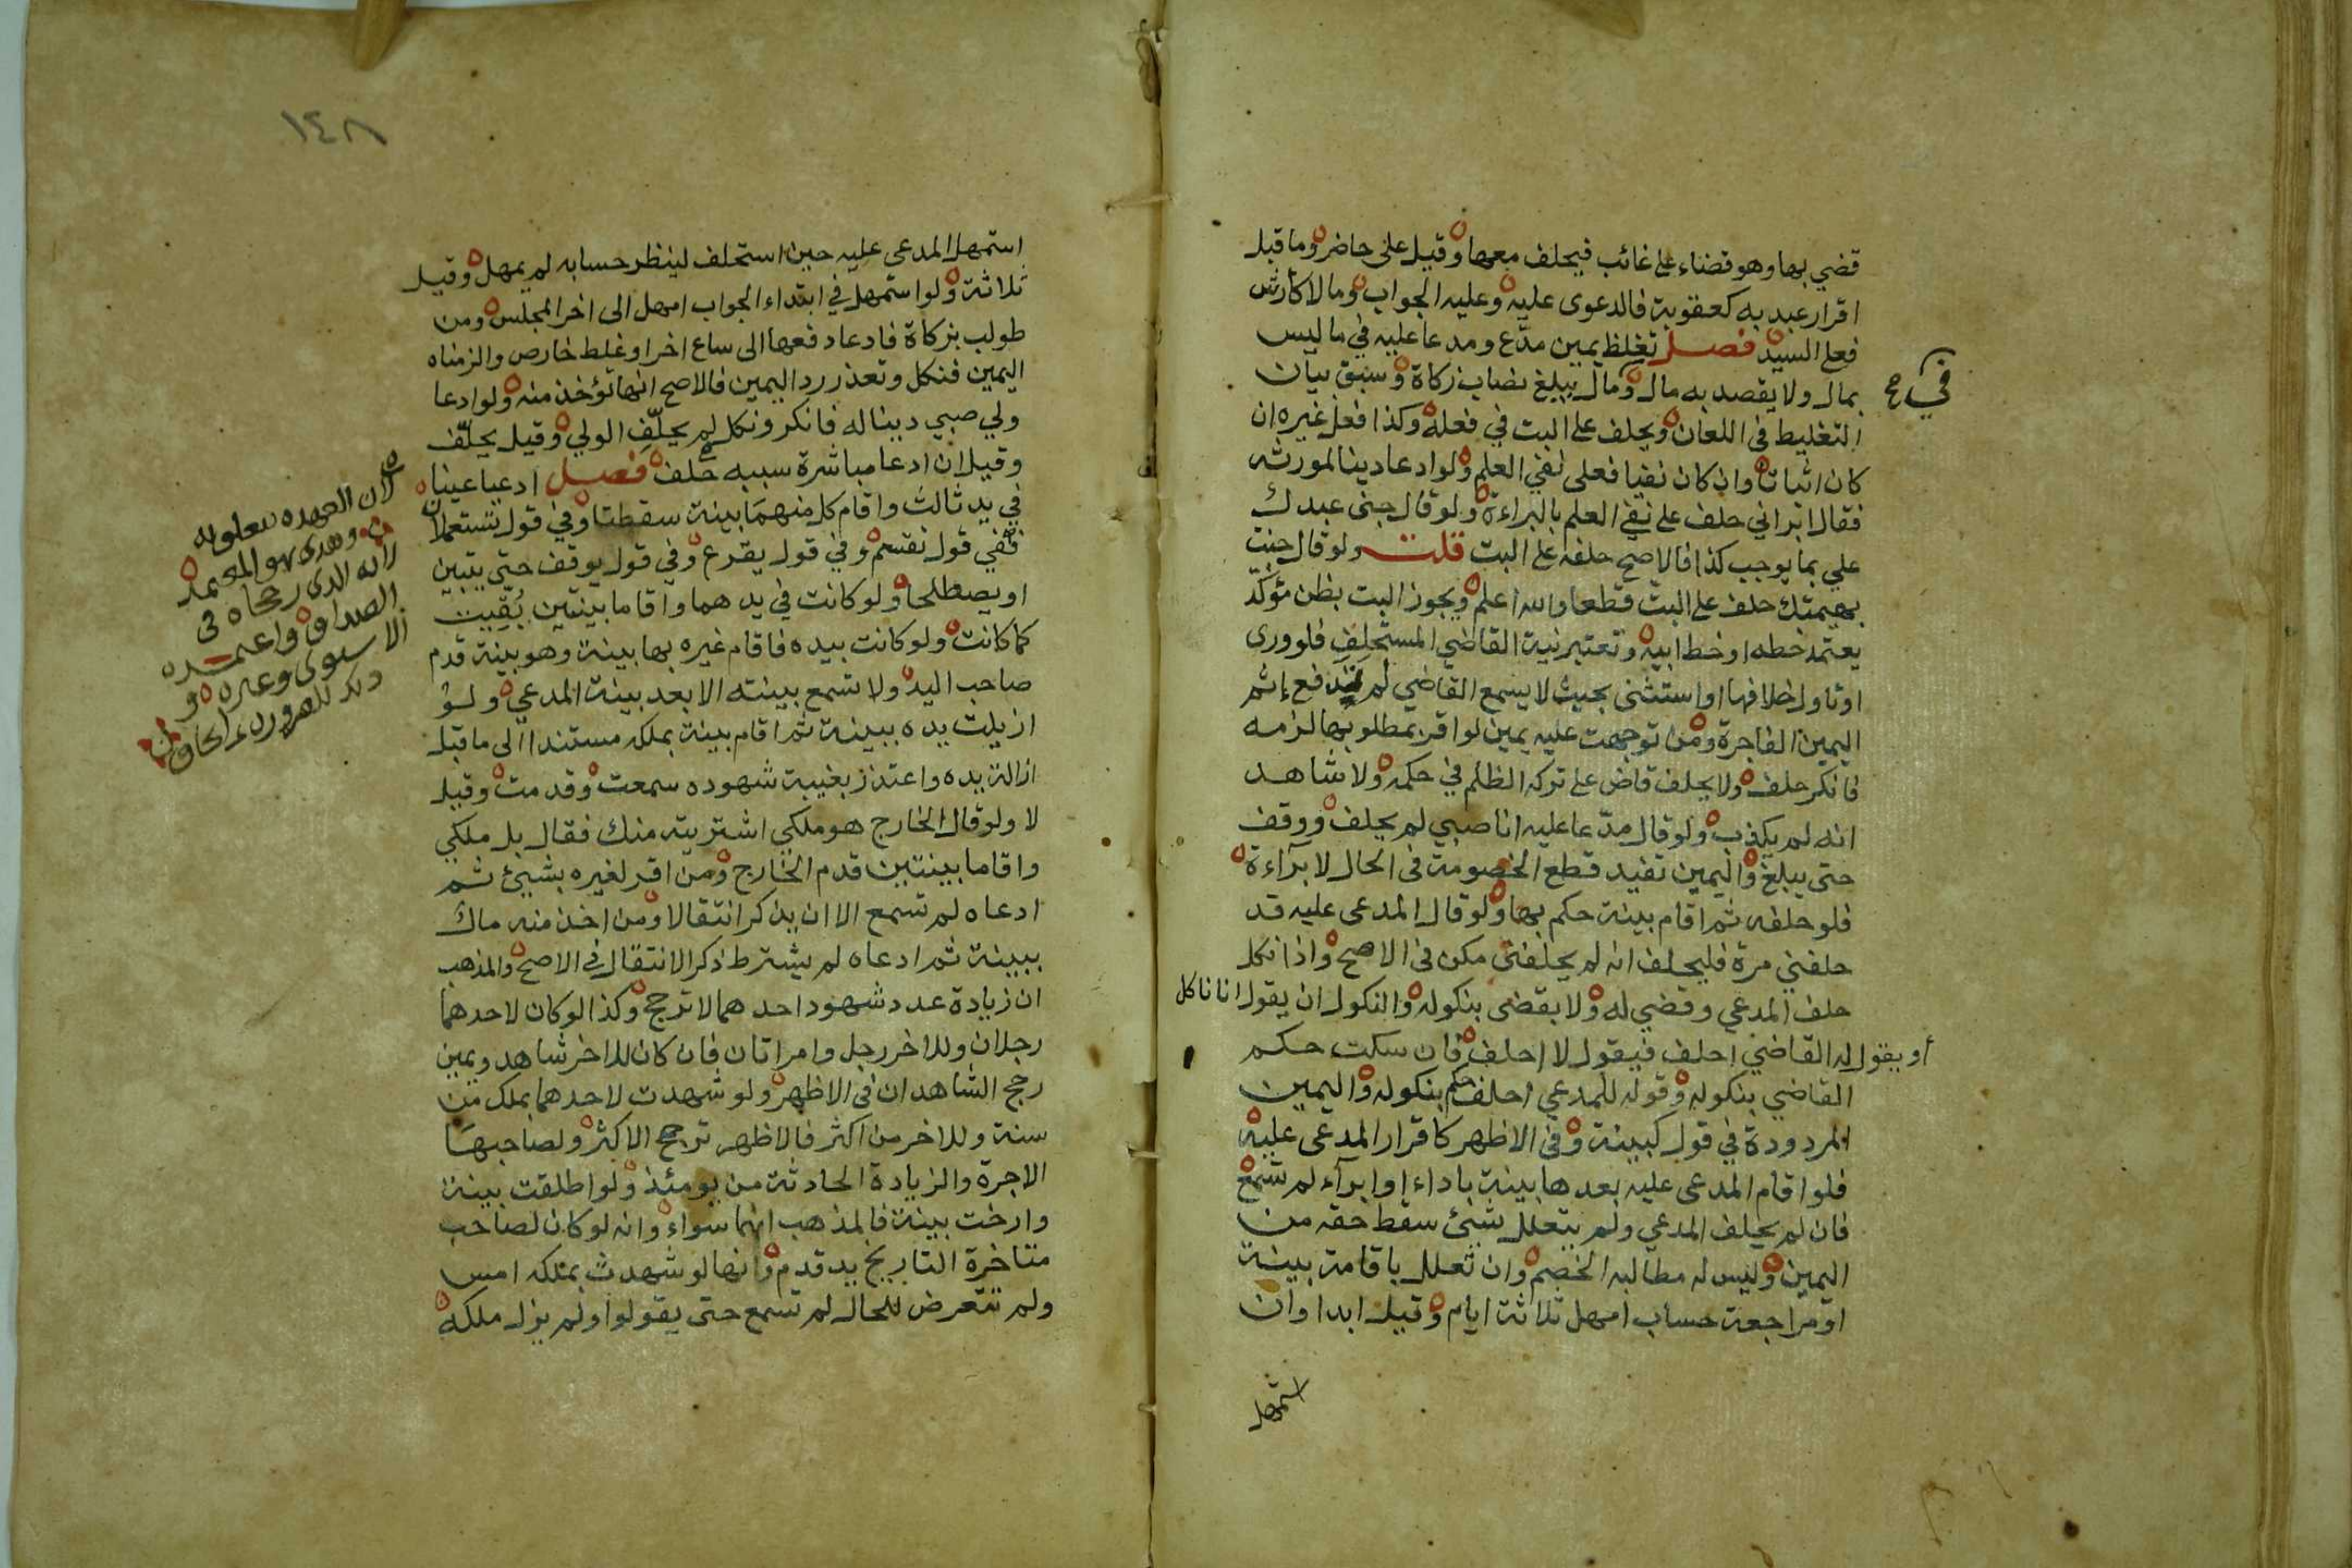 قضي بها وهو قضاء على غائب فيحلف معها وقيل على حاضر وما قبل
اقرار عبد به كعقوبة فالدعوى عليه وعليه الجواب وما لا كأرش
فعلى السيد فصل تغلظ يمين مدّع ومدعا عليه في ما ليس
بمال ولا يقصد به مال ومال يبلغ نصاب زكاة وسبق بيان
في
التغليط في اللعان ويحلف على البت في فعله وكذا فعل غيره ان
كان اثباتا وان كان نفيا فعلى نفي العلم ولو ادعا دينا لمورثه
فقال ابراني حلف على نفي العلم بالبراءة ولو قال جنى عبدك
علي بما يوجب كذا فالاصح حلفه على البت قلت ولو قال جنت
بهيمتك حلف على البت قطعا والله اعلم ويجوز البت بظن مؤكد
يعتمد خطه او خط ابيه وتعتبر نية القاضي المستحلِفِ فلو ورى
او تاول خلافها او استثنى بحيث لا يسمع القاضي لم يندفع إثم
اليمين الفاجرة ومن توجهت عليه يمين لو اقر بمطلوبها لزمه
فانكر حلف ولا يحلف قاض على تركه الظلم في حكمه ولا شاهد
انه لم يكذب ولو قال مدّعا عليه انا صبي لم يحلف ووقف
حتى يبلغ واليمين تفيد قطع الخصومة في الحال لا براءة
فلو حلفه ثم اقام بينة حكم بها ولو قال المدعى عليه قد
حلفني مرة فليحلف انه لم يحلفني مكن في الاصح واذا نكل
حلف المدعي وقضي له ولا يقضى بنكوله والنكول ان يقول انا ناكل
أو يقول له القاضي احلف فيقول لا احلف فان سكت حكم
القاضي بنكوله وقوله للمدعي احلف حكم بنكوله واليمين
المردودة في قول كبينة وفي الاظهر كاقرار المدعى عليه
فلو اقام المدعى عليه بعدها بينة باداء او ابراء لم تسمع
فان لم يحلف المدعي ولم يتعلل بشئ سقط حقه من
اليمين وليس له مطالبه الخصم وان تعلل باقامة بينة
او مراجعة حساب امهل ثلاثة ايام وقيل ابدا وان
استمهل
١٤٨
استمهل المدعى عليه حين استحلف لينظر حسابه لم يمهل وقيل
ثلاثة ولو استمهل في ابتداء الجواب امهل الى اخر المجلس ومن
طولب بزكاة فادعا دفعها الى ساع اخر او غلط خارص والزمناه
اليمين فنكل وتعذر رد اليمين فالاصح انها تؤخذ منه ولو ادعا
ولي صبي دينا له فانكر ونكل لم يحلّف الولي وقيل يحلّف
وقيل ان ادعا مباشرة سببه حلف فصل ادعيا عينا
في يد ثالث واقام كل منهما بينة سقطتا وفي قول تستعملان
ففي قول تقسم وفي قول يقرع وفي قول يوقف حتى يتبين
او يصطلحا ولو كانت في يدهما واقاما بينتين بُقِيت
كما كانت ولو كانت بيده فاقام غيره بها بينة وهو بينة قدم
صاحب اليد ولا تسمع بينته الا بعد بينة المدعي ولو
ازيلت يده ببينة ثم اقام بينة بملكه مستندا الى ما قبل
ازالة يده واعتذر بغيبة شهوده سمعت وقدمت وقيل
لا ولو قال الخارج هو ملكي اشتريته منك فقال بل ملكي
واقاما بينتين قدم الخارج ومن اقر لغيره بشئ ثم
ادعاه لم تسمع الا ان يذكر انتقالا ومن اخذ منه مال
ببينة ثم ادعاه لم يشترط ذكر الانتقال في الاصح والمذهب
ان زيادة عدد شهود احدهما لا ترجح وكذا لو كان لاحدهما
رجلان وللاخر رجل وامراتان فان كان للاخر شاهد ويمين
رجح الشاهدان في الاظهر ولو شهدت لاحدهما بملك من
سنة وللاخر من اكثر فالاظهر ترجح الاكثر ولصاحبها
الاجرة والزيادة الحادثة من يومئذ ولو اطلقت بينة
وارخت بينة فالمذهب انهما سواء وانه لو كان لصاحب
متاخرة التاريخ يد قدم وانها لو شهدت بملكه امس
ولم تتعرض للحال لم تسمع حتى يقولوا ولم يزل ملكه
وهذا هو المعتمد
لانه الذي رجحاه في
الصداق واعتمده
الاسنوي وغيره